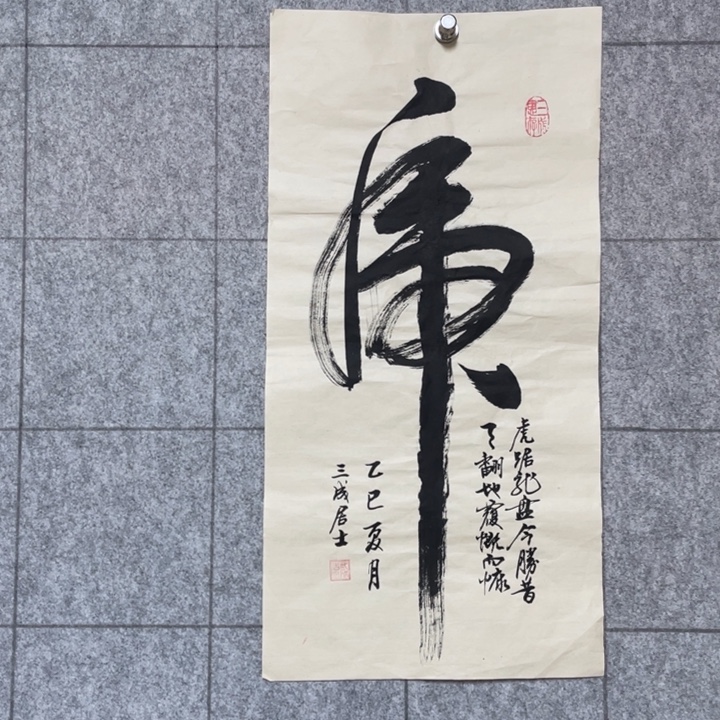 虎
虎踞龙盘今勝昔
天翻地覆慨而慷
乙巳夏月
三成居士